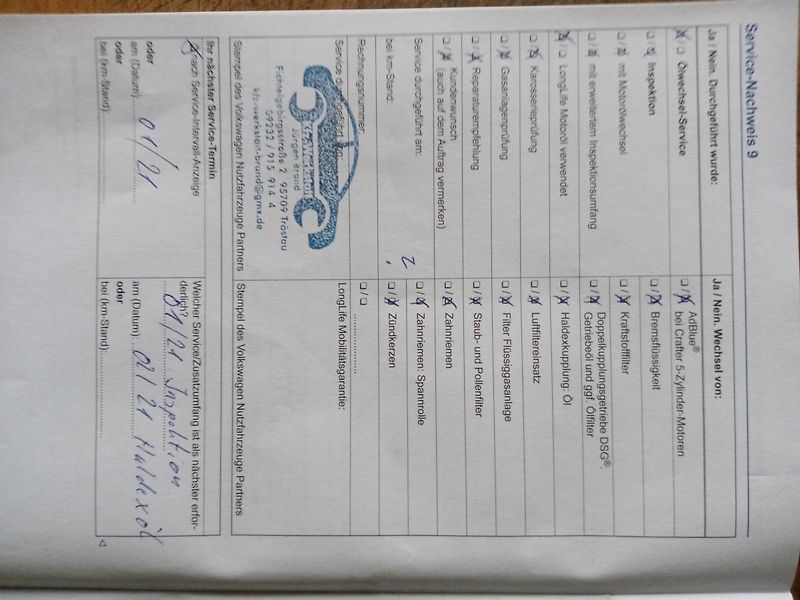 Service-Nachweis 9
Ja / Nein. Durchgeführt wurde:
Ölwechsel-Service
Inspektion
mit Motorölwechsel
mit erweitertem Inspektionsumfang
LongLife Motoröl verwendet
Karosserieprüfung
Gasanlagenprüfung
Reparaturempfehlung
Kundenwunsch
(auch auf dem Auftrag vermerken)
Service durchgeführt am:
bei km-Stand:
Rechnungsnummer:
Service durchgeführt von:
Jürgen Brand
Fichtelgebirgsstraße 2 95709 Tröstau
09232 / 915 914 4
kfz-werkstatt-brand@gmx.de
Stempel des Volkswagen Nutzfahrzeuge Partners
Ja / Nein. Wechsel von:
AdBlue®
bei Crafter 5-Zylinder-Motoren
Bremsflüssigkeit
Kraftstofffilter
Doppelkupplungsgetriebe DSG®:
Getriebeöl und ggf. Ölfilter
Haldexkupplung: Öl
Luftfiltereinsatz
Filter Flüssiggasanlage
Staub- und Pollenfilter
Zahnriemen
Zahnriemen: Spannrolle
Zündkerzen
LongLife Mobilitätsgarantie:
Stempel des Volkswagen Nutzfahrzeuge Partners
Ihr nächster Service-Termin
nach Service-Intervall-Anzeige
oder
am (Datum): 01/21
oder
bei (km-Stand):
Welcher Service/Zusatzumfang ist als nächster erfor-
derlich?
01/21 Inspektion
am (Datum): 02/21 Haldexöl
oder
bei (km-Stand):